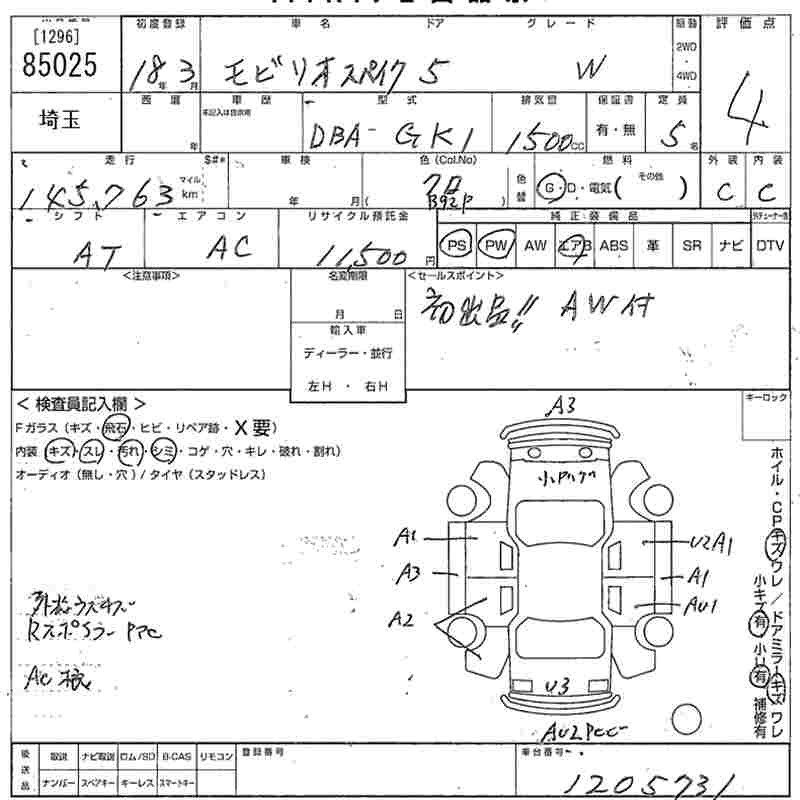 [1296]
85025
埼玉
初度登録 車名 ドア グレード 駆動 評価点
18年 3月 モビリオスパイク 5 W 2WD 4WD 4
西暦 車歴 型式 排気量 保証書 定員
年 未記入は自家用 DBA- GK1 1500cc 有・無 5名
走行 $#* 車検 色(Col.No) 燃料 外装 内装
145,763 マイル km 年 月( クロ B92P ) 色替 G・D・電気( その他 ) C C
シフト エアコン リサイクル預託金 純正装備品
AT AC 11,500円 PS PW AW エアB ABS 革 SR ナビ DTV
<注意事項> 名変期限 <セールスポイント>
月 日 初出品!! AW付
輸入車
ディーラー・並行
左H ・ 右H
< 検査員記入欄 > キーロック
Fガラス(キズ・飛石・ヒビ・リペア跡・X要)
内装(キズ・スレ・汚れ・シミ・コゲ・穴・キレ・破れ・割れ)
オーディオ(無し・穴)/タイヤ(スタッドレス)
A3
A1 U2A1
A3 A1
A2 AU1
U3
AU2Pcc
Rスポイラー PPC
ホイル・CPキズワレ/ドアミラーキズワレ
小キズ有 小U有 補修有
後送品 取説 ナビ取説 ロム/SD B-CAS リモコン 登録番号 車台番号
ナンバー スペアキー キーレス スマートキー 1205731